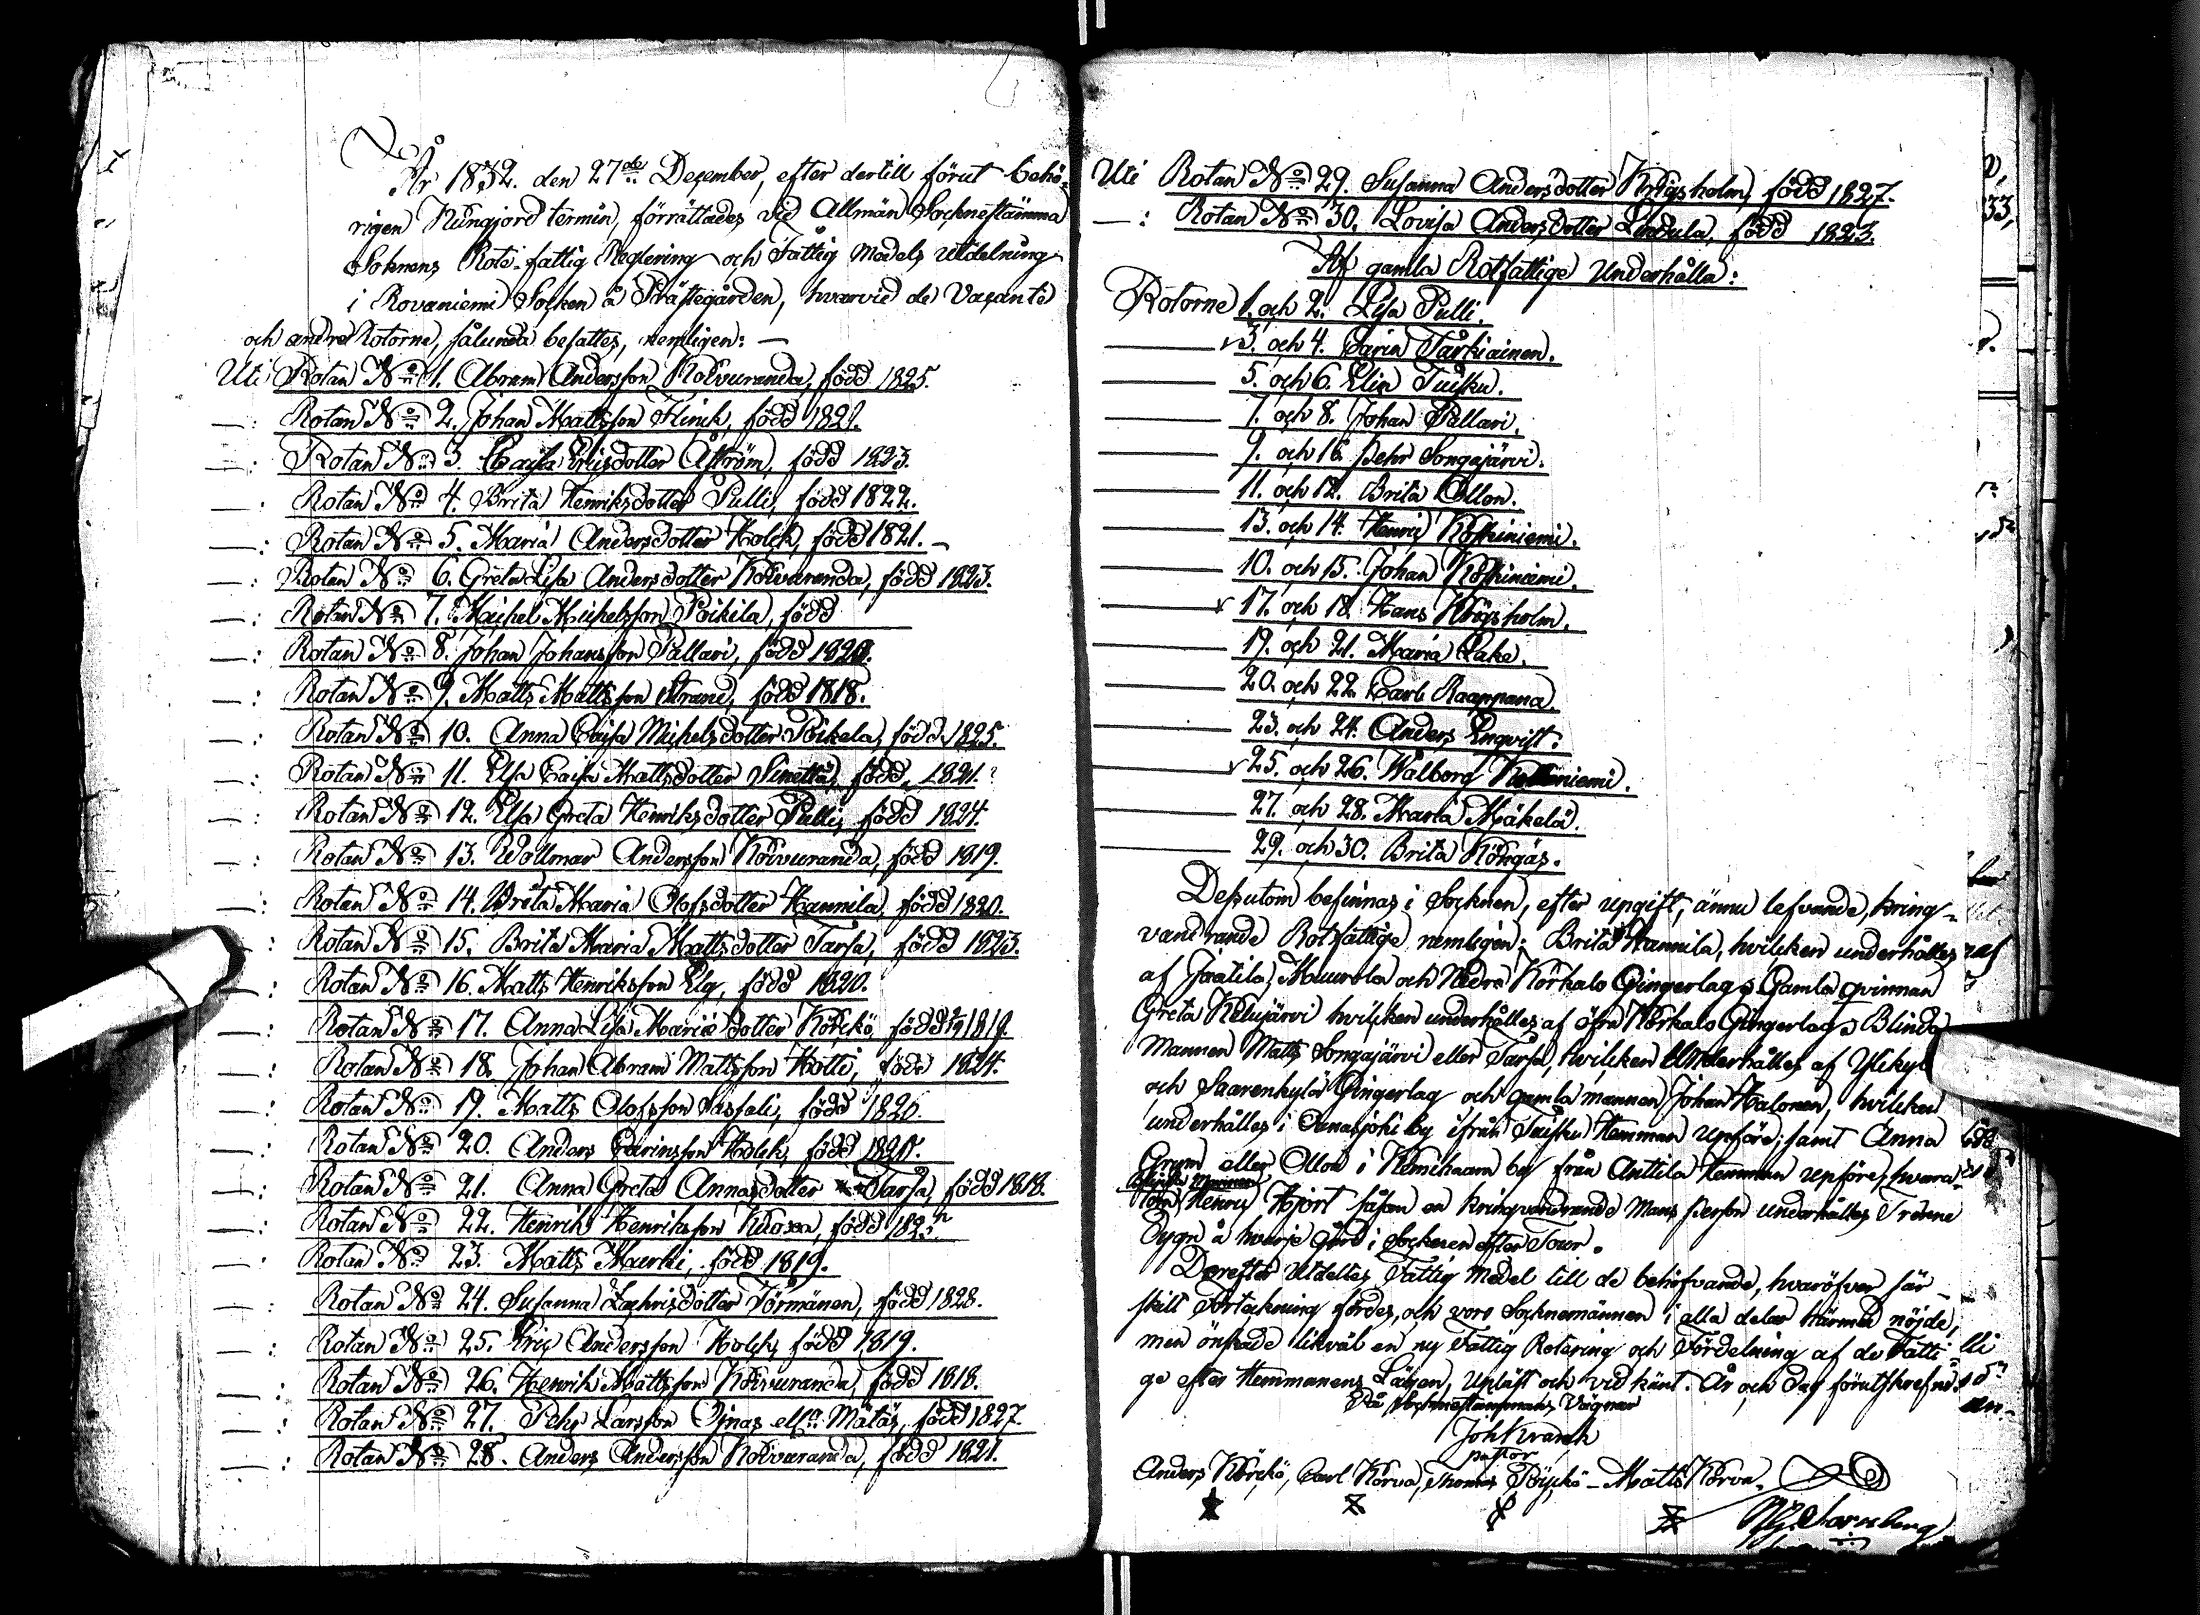 År 1832. den 27de December, efter dertill förut behö-
rigen Kungjord termin, förrättades vid Allmän Sochnestämma
Soknens Rote-fattig Reglering och Fattig Medels utdelning
i Rovaniemi Socken å Prästegården, hvarvid de Vacante
och andre Rotorne, sålunda besattes, nemligen: —
Uti Rotan No 1. Abram Andersson Koivuranda, född 1825.
—: Rotan No 2. Johan Mattsson Flinck, född 1821.
—: Rotan No 3. Caisa Ericsdotter Åström, född 1823.
—: Rotan No 4. Brita Henriksdotter Pulli, född 1822.
—: Rotan No 5. Maria Andersdotter Holck, född 1821. —
—: Rotan No 6. Greta Lisa Andersdotter Koivuranda, född 1823.
—: Rotan No 7. Michel Michelsson Poikila, född
—: Rotan No 8. Johan Johansson Pallari, född 1820.
—: Rotan No 9. Matts Mattsson Strand, född 1818.
—: Rotan No 10. Anna Caisa Michelsdotter Poikela, född 1825.
—: Rotan No 11. Elsa Caisa Mattsdotter Sinettä, född 1821.
—: Rotan No 12. Elsa Greta Henriksdotter Pulli, född 1824.
—: Rotan No 13. Wollmar Andersson Koivuranda, född 1819.
—: Rotan No 14. Brita Maria Olofsdotter Hannila, född 1820.
: Rotan No 15. Brita Maria Mattsdotter Tarsa, född 1823.
—: Rotan No 16. Matts Henriksson Elg, född 1820.
—: Rotan No 17. Anna Lisa Mariædotter Körckö, född 1819.
—: Rotan No 18. Johan Abram Mattsson Hotti, född 1824.
—: Rotan No 19. Matts Olofsson Sasfali, född 1820.
—: Rotan No 20. Anders Carinsson Holck, född 1820.
—: Rotan No 21. Anna Greta Annasdotter Tarsa, född 1818.
—: Rotan No 22. Henrik Henriksson Kuoxa, född 1823.
—: Rotan No 23. Matts Maurki, född 1819.
—: Rotan No 24. Susanna Zachrisdotter Törmänen, född 1828.
—: Rotan No 25. Eric Andersson Holck, född 1819.
—: Rotan No 26. Henrik Mattsson Koivuranda, född 1818.
—: Rotan No 27. Pehr Larsson Ojnas ellr Mätäs, född 1827.
—: Rotan No 28. Anders Andersson Koivuranda, född 1821.
Uti Rotan No 29. Susanna Andersdotter Krigsholm, född 1827.
—: Rotan No 30. Lovisa Andersdotter Lindula, född 1823.
Af gamla Rotfattige Underhålla:
Rotorne 1. och 2. Lisa Pulli.
3. och 4. Carin Tårkiainen.
5. och 6. Elin Tuisku.
7. och 8. Johan Pallari.
9. och 16. Pehr Songajärvi.
11. och 12. Brita Ollon.
13. och 14. Henric Koskiniemi.
10. och 15. Johan Koskiniemi.
17. och 18. Hans Krigsholm.
19. och 21. Maria Lake.
20. och 22. Carl Raappana.
23. och 24. Anders Enqvist.
25. och 26. Walborg
27. och 28. Maria Mäkelä.
29. och 30. Brita Köngäs.
Dessutom befinnas i Socknen, efter upgift, ännu lefvande, kring-
vandrande Rotfattige nemligen: Brita Hannila, hvilcken underhålles
af Jaatila, Muurola och Nedre Korkalo Gingerlag, Gamla qvinnan
Greta Kelujärvi hvilcken underhålles af öfra Korkalo Gingerlag, Blinda
Mannen Matts Songajärvi eller Tarsa, hvilcken Underhålles af Ylikylä
och Saarenkylä Gingerlag och gamla mannen Johan Halonen, hvilcken
underhålles i Ounasjoki by ifrån Tuisku Hemman upföre; samt Anna
Grym eller Ollon i Kemihaara by från Anttila Hemman upföre, hvara-
Henric Hjort såsom en kringvandrande Mans Person underhålles Trenne
Dygn å hvarje gård i Socknen efter Tour.
Derefter utdeltes Fattig Medel till de behöfvande, hvaröfver sär-
skilt Förteckning fördes, och voro Socknemännen i alla delar härmed nöjde,
men önskade likväl en ny Fattig Rotering och Fördelning af de Fatti-
ge efter Hemmanens Lägen, Upläst och vidkänt. År och Dag förutskrefne.
På Sochnestämmans Vägnar
Joh Kranck
pastor
Anders Körckö, Carl Korva, Thomas Pöyckö - Matts Korva.